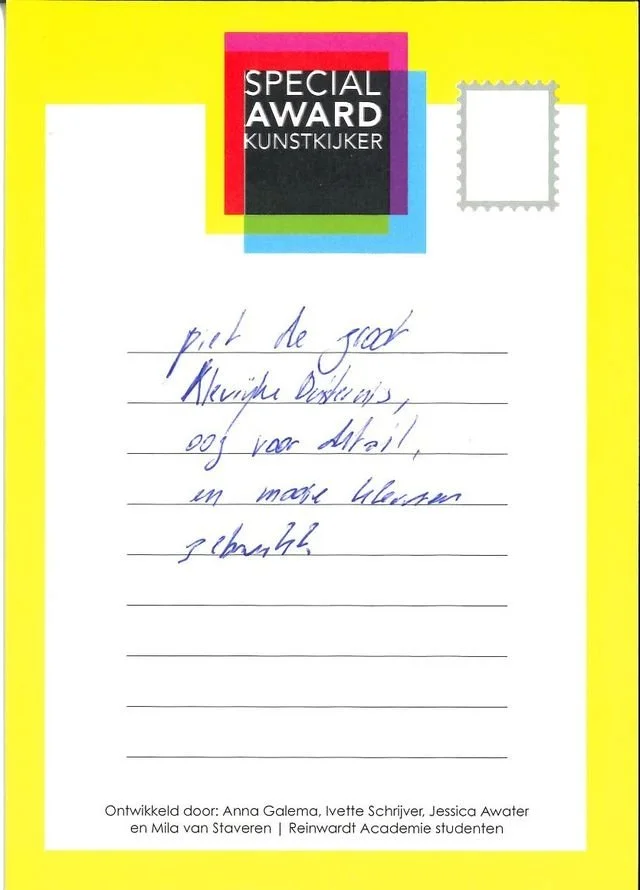 SPECIAL
AWARD
KUNSTKIJKER
piet de groot
Kleurijke Duisternis,
oog voor detail,
en mooie kleuren
gebruikt.
Ontwikkeld door: Anna Galema, Ivette Schrijver, Jessica Awater
en Mila van Staveren | Reinwardt Academie studenten